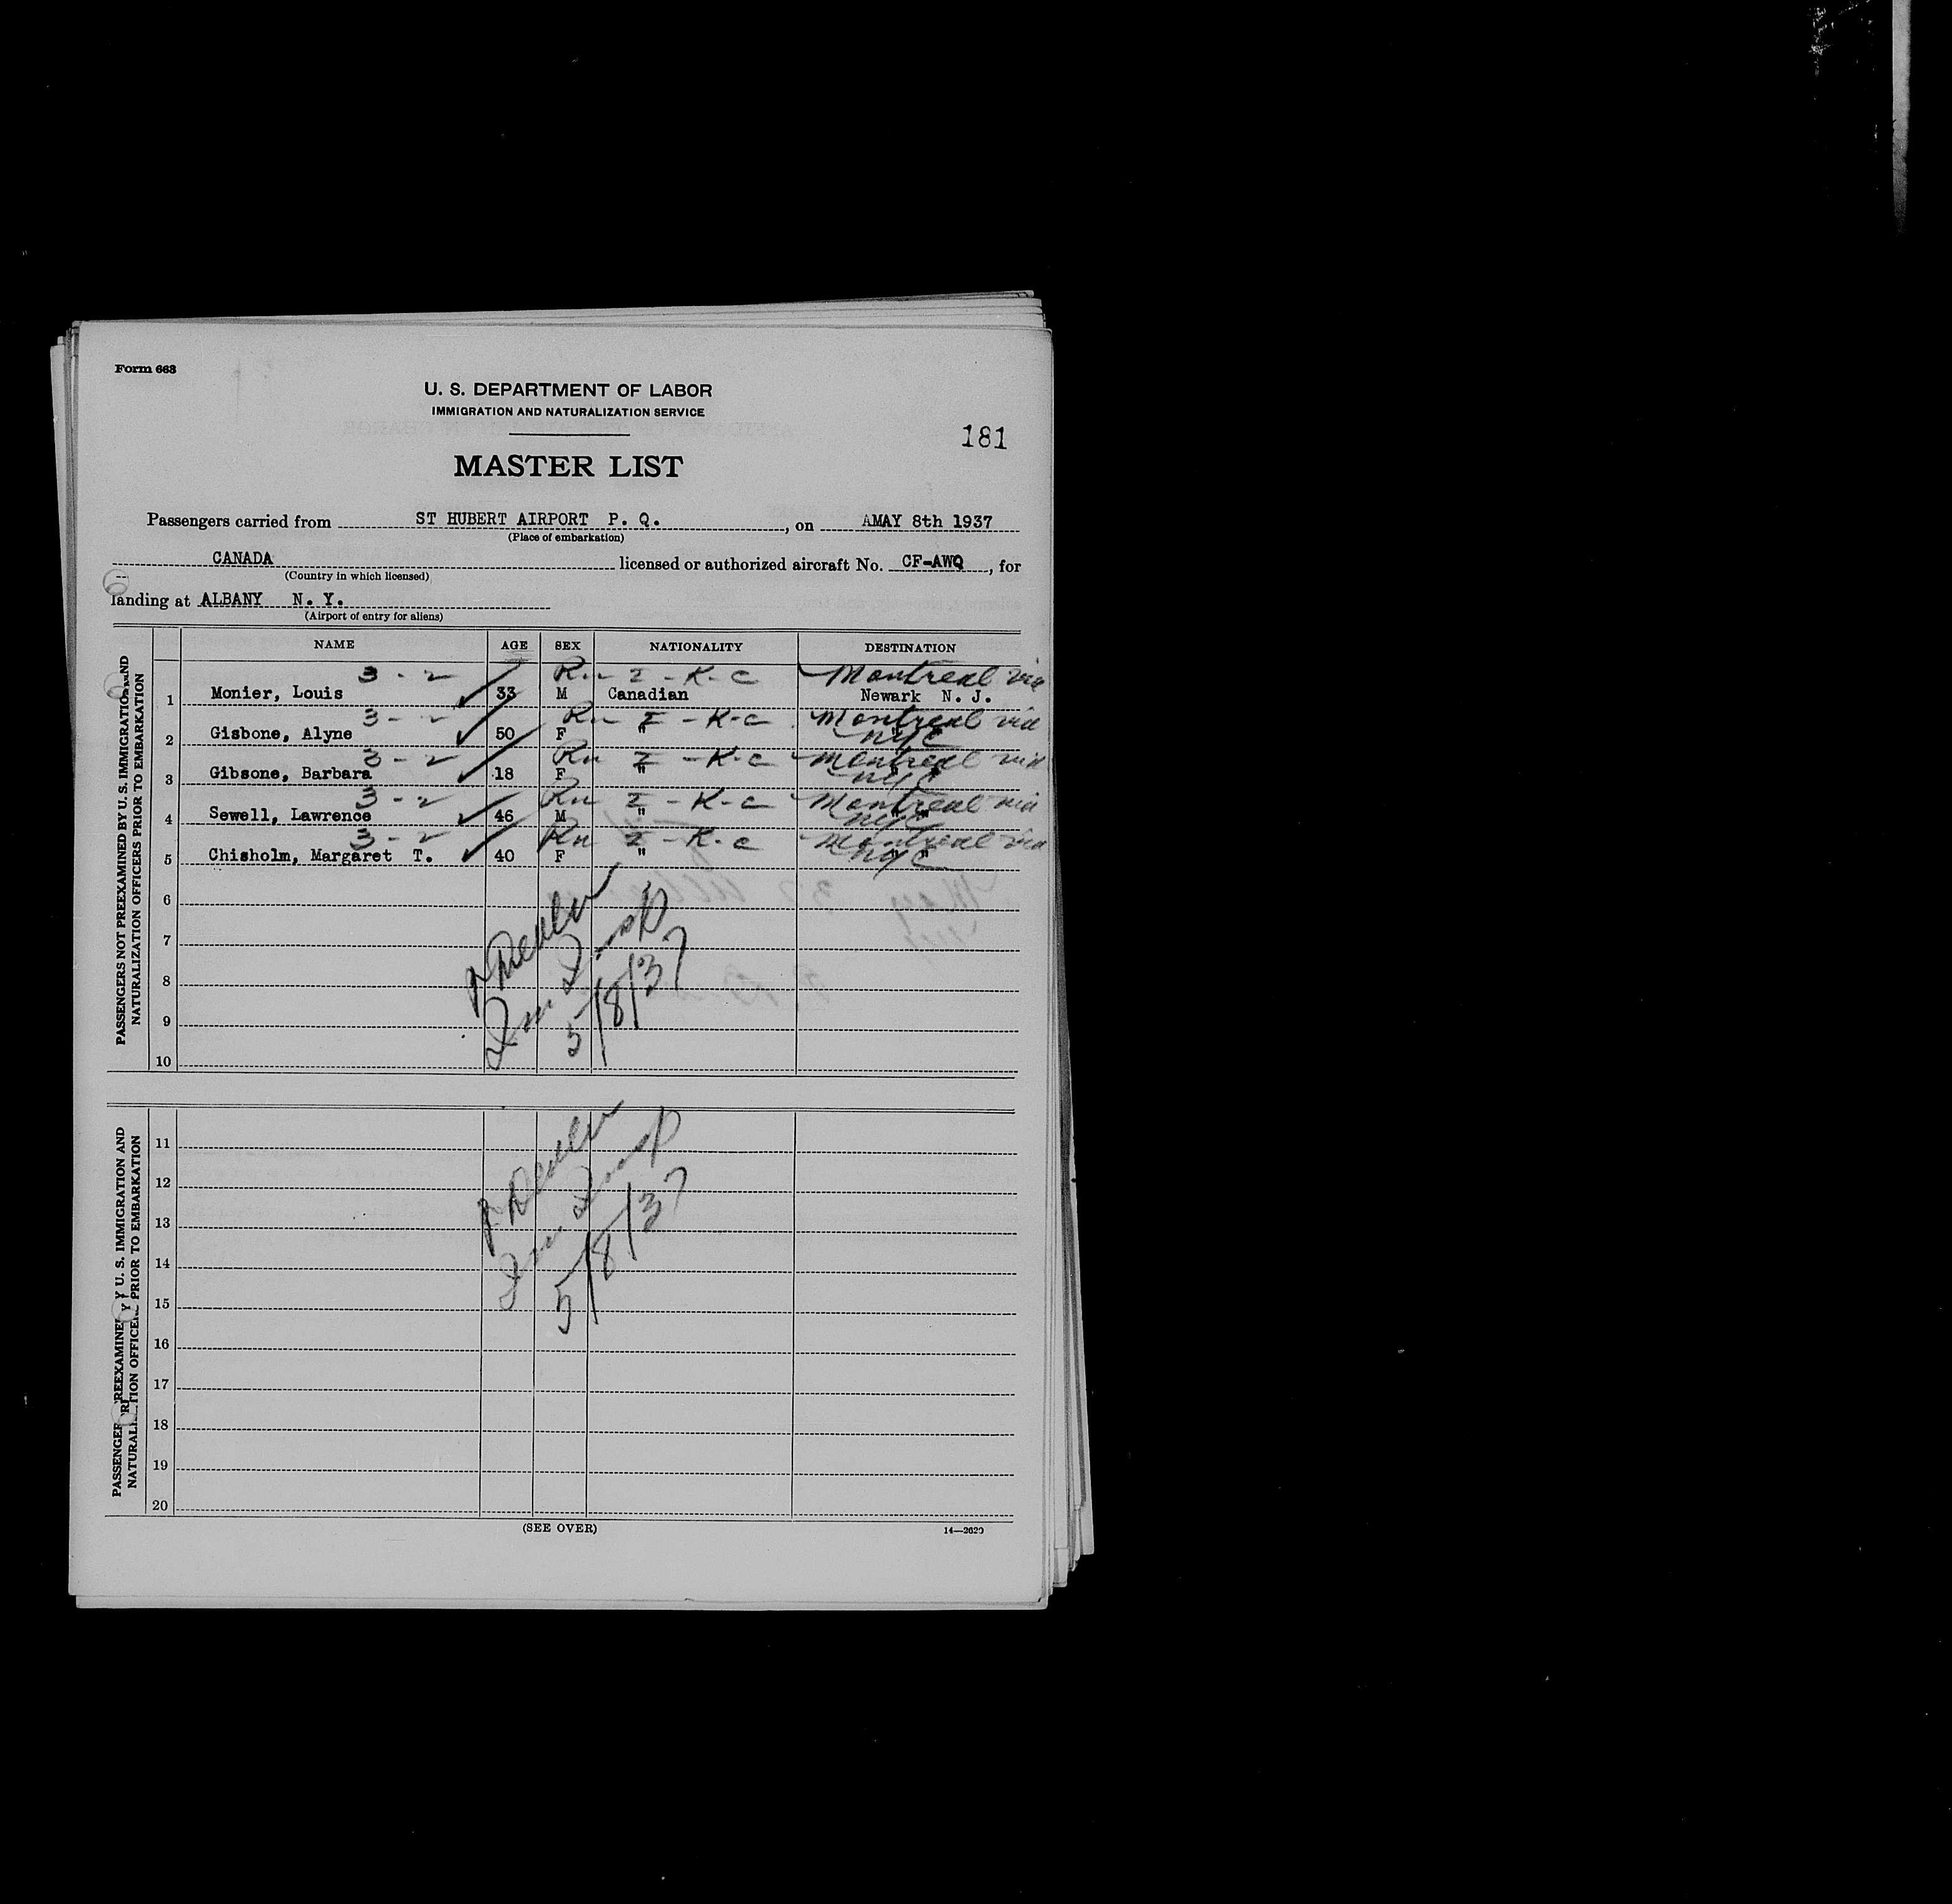 Form 663
U. S. DEPARTMENT OF LABOR
IMMIGRATION AND NATURALIZATION SERVICE
181
MASTER LIST
Passengers carried from ST HUBERT AIRPORT P. Q. , on AMAY 8th 1937
(Place of embarkation)
CANADA licensed or authorized aircraft No. CF-AWQ , for
(Country in which licensed)
landing at ALBANY N. Y.
(Airport of entry for aliens)
PASSENGERS NOT PREEXAMINED BY U. S. IMMIGRATION AND
NATURALIZATION OFFICERS PRIOR TO EMBARKATION
NAME AGE SEX NATIONALITY DESTINATION
3 - 2 I - K-C Montreal via
1 Monier, Louis 33 M Canadian Newark N. J.
3 - 2 I - K-C Montreal via
2 Gisbone, Alyne 50 F " NYC
3 - 2 I - K-C Montreal via
3 Gibsone, Barbara 18 F " " NYC "
3 - 2 I - K-C Montreal via
4 Sewell, Lawrence 46 M " " NYC "
3 - 2 I - K-C Montreal via
5 Chisholm, Margaret T. 40 F " " NYC "
6
7
8
9
10
5/8/37
PASSENGER PREEXAMINE Y U. S. IMMIGRATION AND
NATURALI TION OFFICE PRIOR TO EMBARKATION
11
12
13
14
15
16
17
18
19
20
5/8/37
(SEE OVER)
14—2620